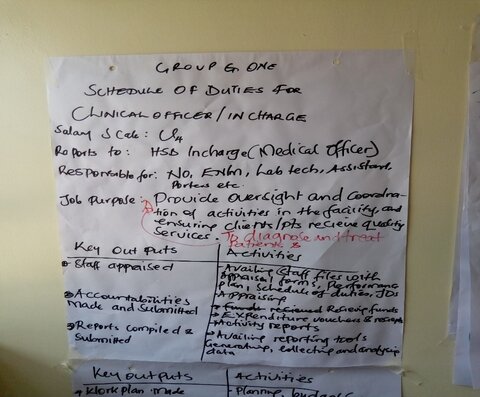 GROUP G. ONE
SCHEDULE OF DUTIES FOR
CLINICAL OFFICER/INCHARGE
Salary Scale: U4
Reports to: HSD Incharge (Medical Officer)
Responsable for: NO, EN&M, Lab tech, Assistant,
Porters etc.
Job Purpose: Provide oversight and Coordina-
tion of activities in the facility, and
ensuring clients/pts recieve quality
services. To diagnose and treat
patients &
Key outputs Activities
Staff appraised Availing staff files with
Appraisal forms, Performance
plan, Schedule of duties, JDs
Appraising
Accountabilities
made and Submitted
funds recieved Recieving funds
Expenditure vouchers & reciepts
Activity reports
Reports compiled &
Submitted
Availing reporting tools
Generating, collecting and analysing
data
Key outputs Activities
Workplan made Planning, budget